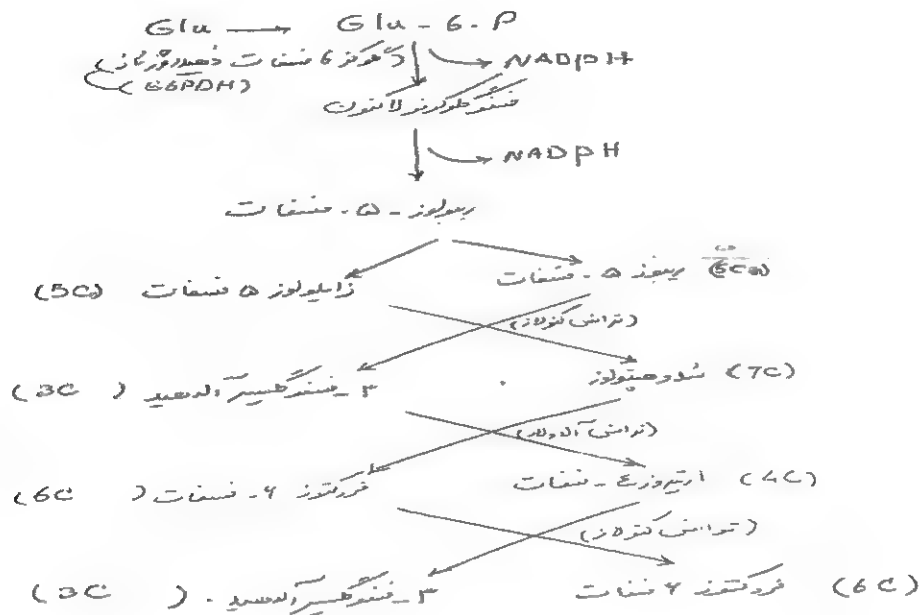 Glu → Glu - 6 - P
(گلوکز 6 فسفات دهیدروژناز → NADPH
(G6PDH)
فسفوگلوکونولاکتون
→ NADPH
ریبولوز - ۵ - فسفات
(5C) زایلولوز ۵ فسفات ریبوز ۵ - فسفات
(ترانس کتولاز)
(3C) ۳ - فسفوگلیسرآلدهید سدوهپتولوز (7C)
(ترانس آلدولاز)
(6C) فروکتوز ۶ - فسفات اریتروز ۴ - فسفات (4C)
(ترانس کتولاز)
(3C) ۳ - فسفوگلیسرآلدهید . فروکتوز ۶ فسفات (6C)